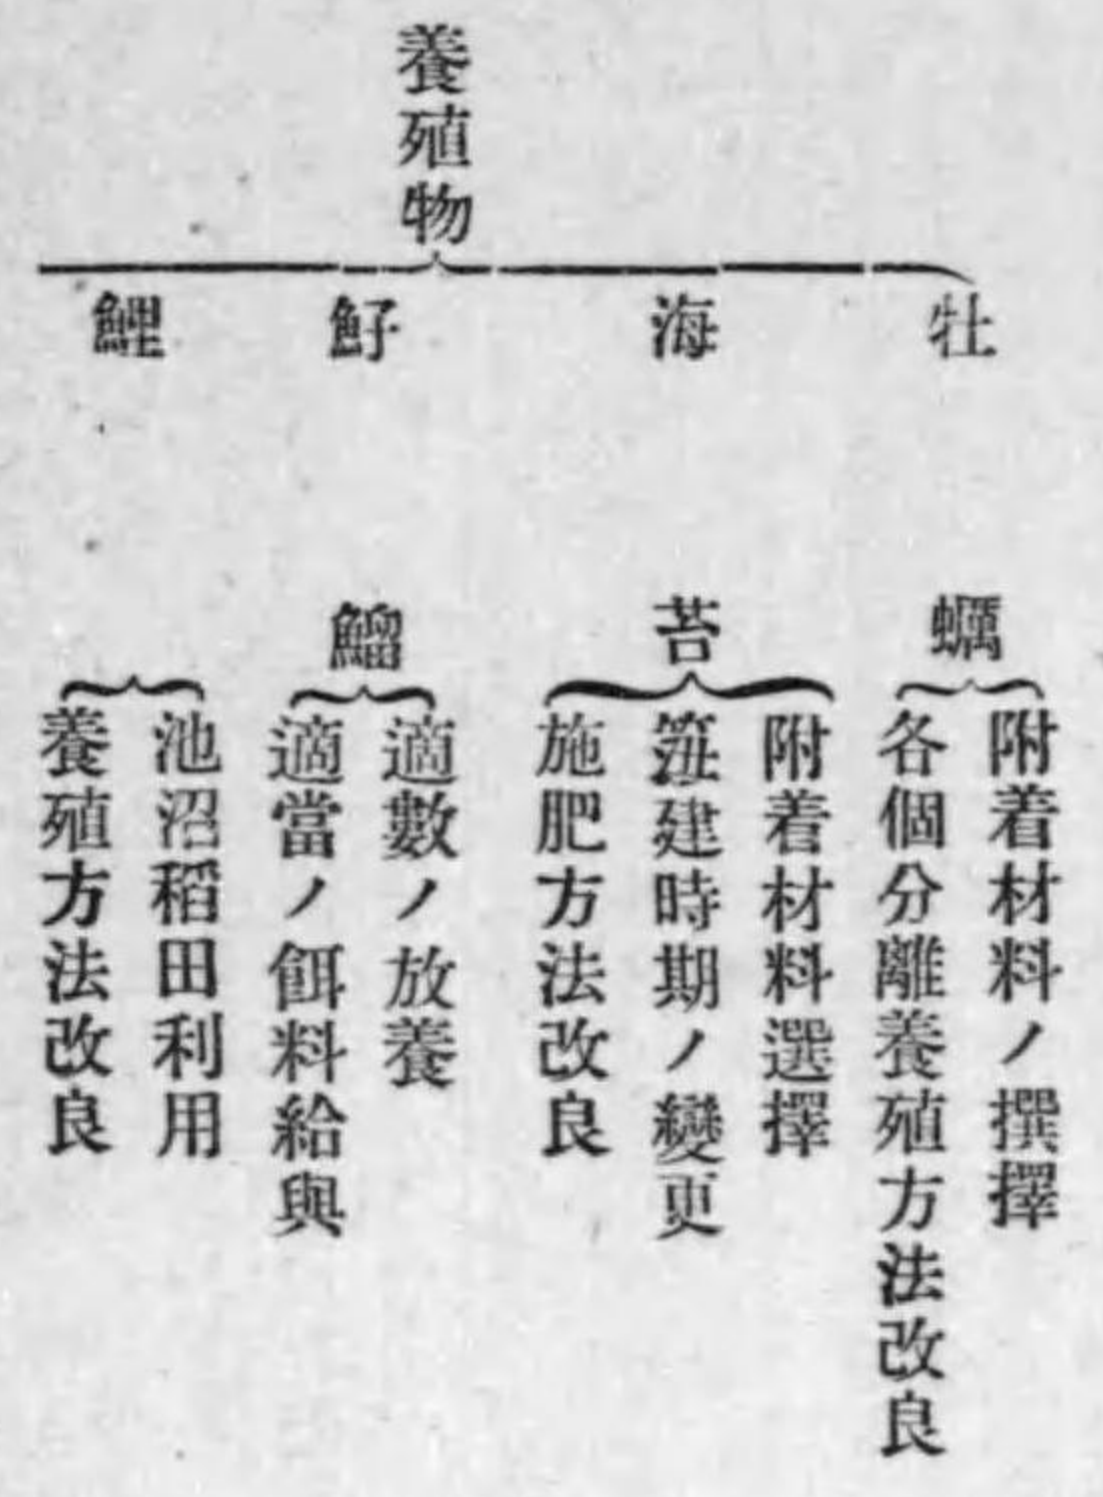 養殖物
牡蠣
附着材料ノ撰擇
各個分離養殖方法改良
海苔
附着材料選擇
篊建時期ノ變更
施肥方法改良
魣鰡
適數ノ放養
適當ノ餌料給與
鯉
池沼稻田利用
養殖方法改良